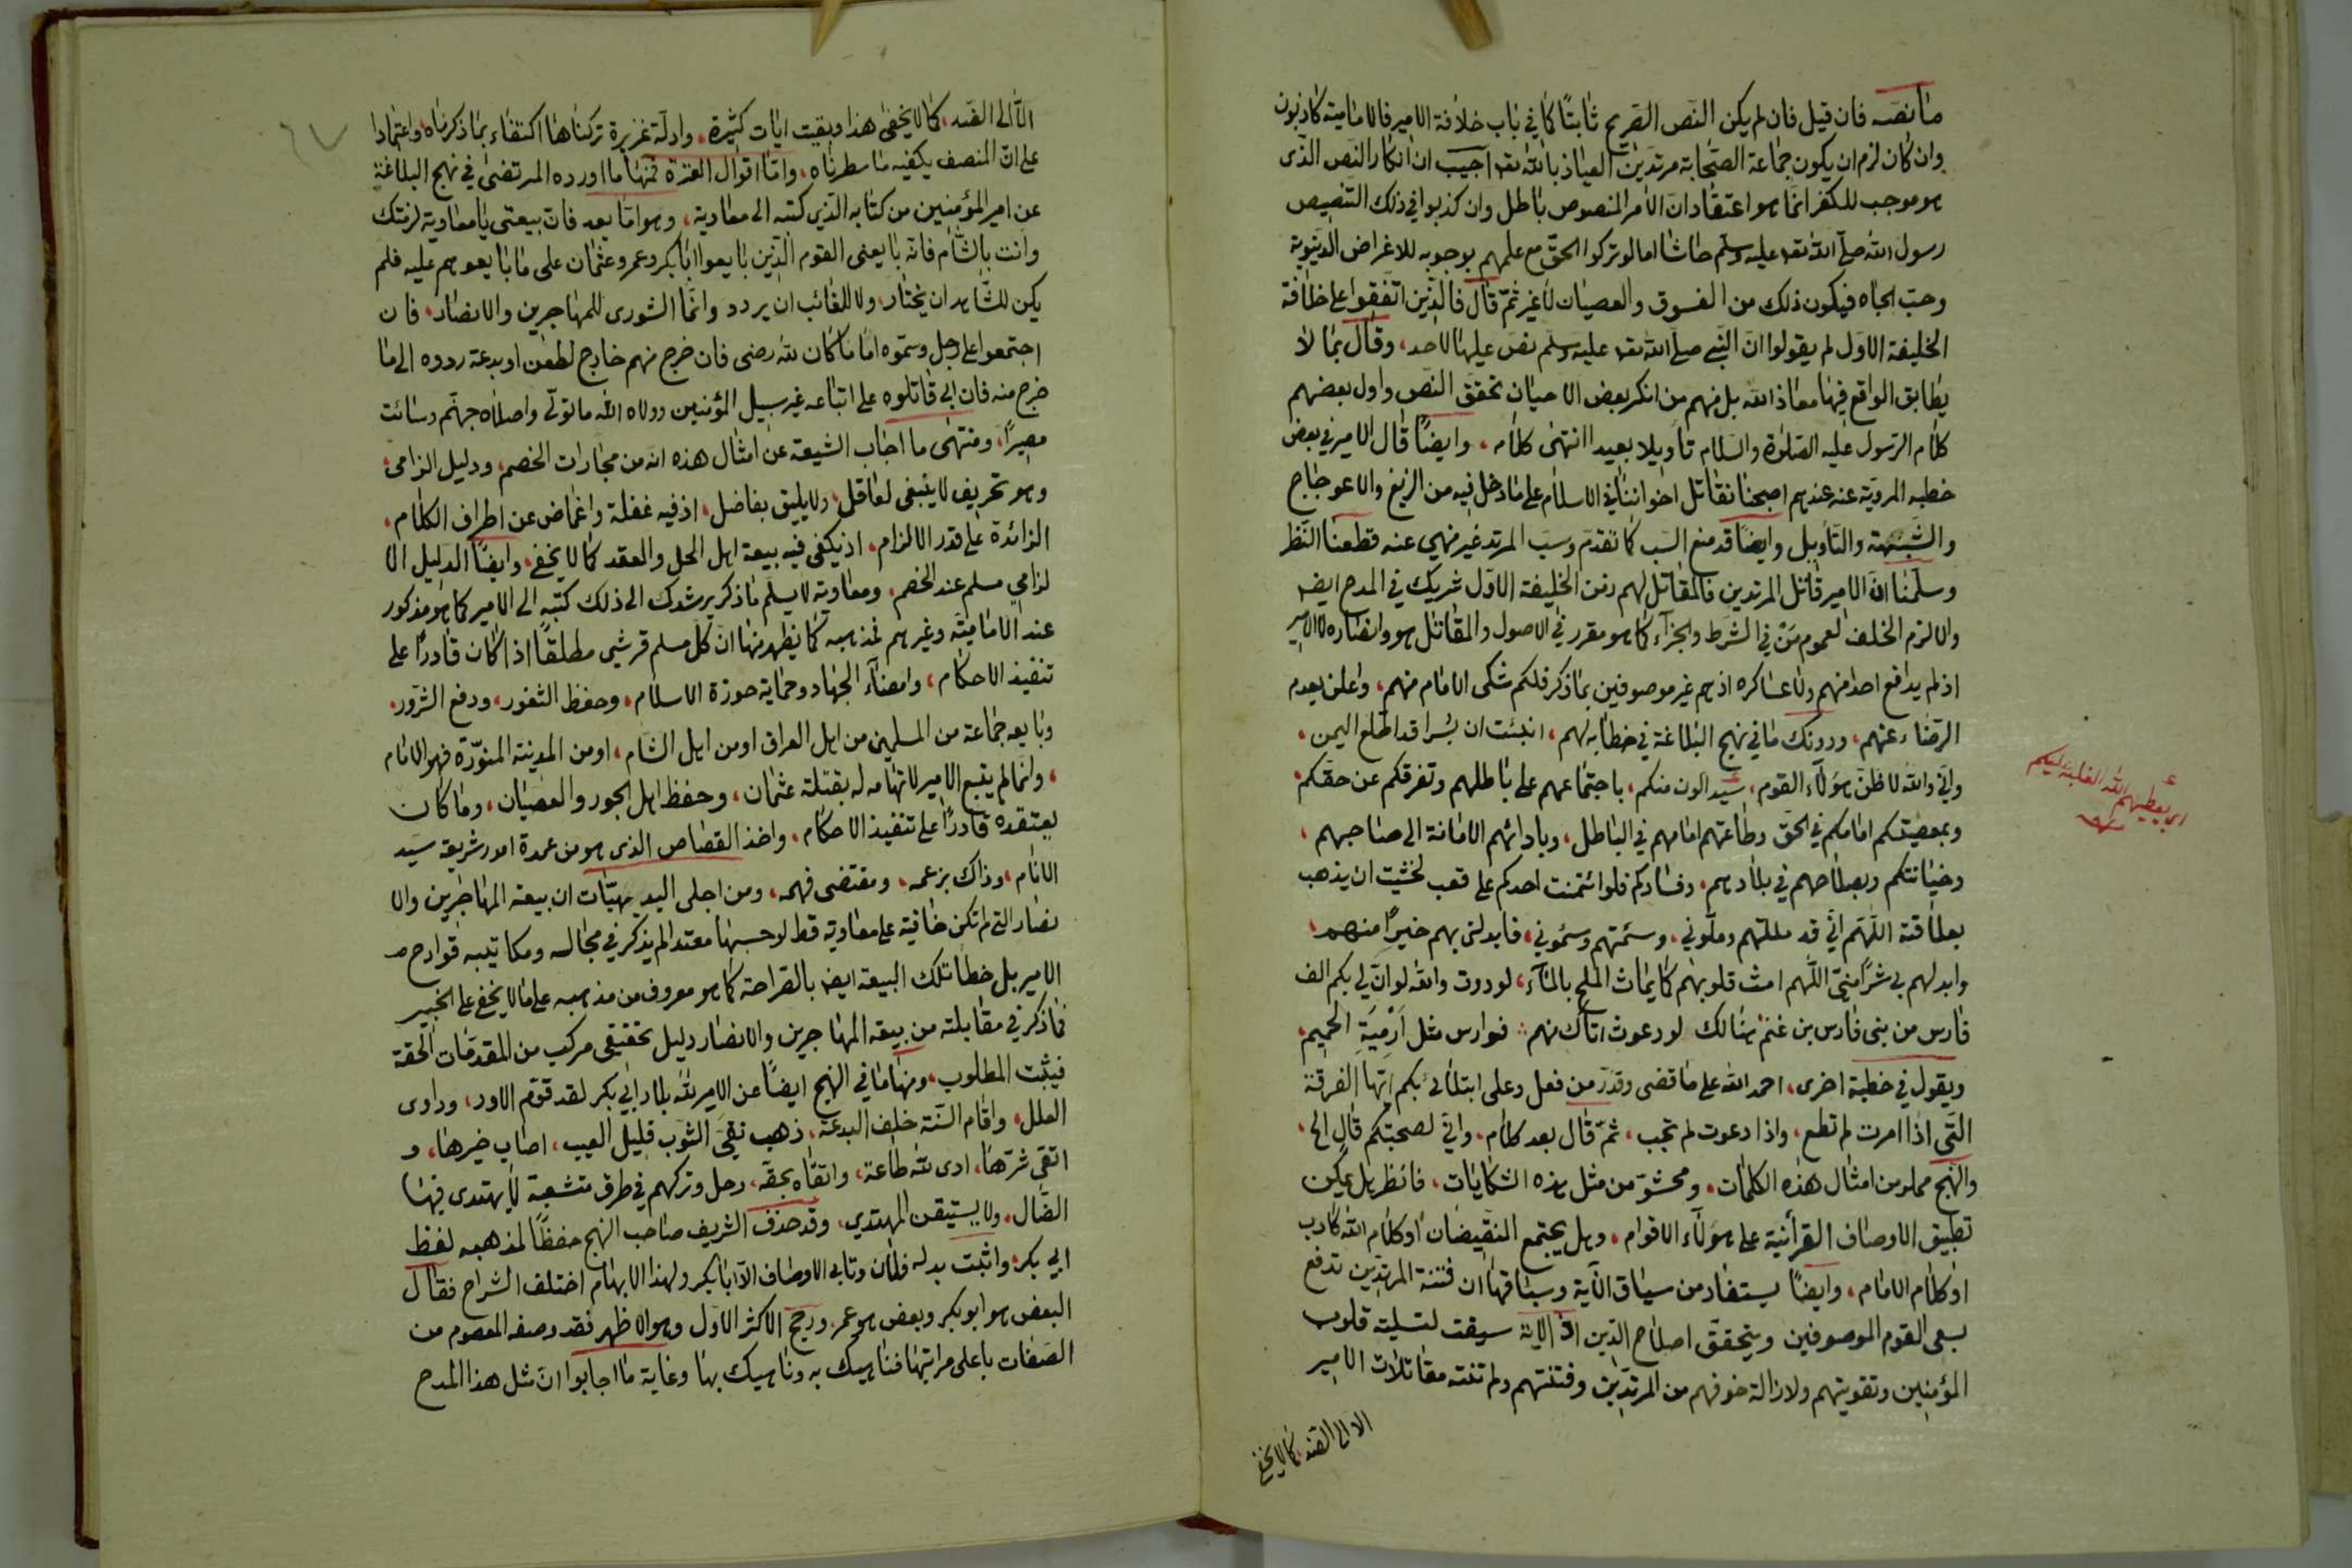 ما نصه فان قيل فان لم يكن النص الصريح ثابتًا كما في باب خلافة الامير فالامامية كاذبون
وان كان لزم ان يكون جماعة الصحابة مرتدين العياذ بالله تعه اجيب ان انكار النص الذى
هو موجب للكفر انما هو اعتقاد ان الامر المنصوص باطل وان كذبوا في ذلك التنصيص
رسول الله صلى الله تعه عليه وسلم حاشا اما لو تركوا الحق مع علمهم بوجوبه للاغراض الدنيوية
وحب الجاه فيكون ذلك من الفسوق والعصيان لا غير ثم قال فالذين اتفقوا على خلافة
الخليفة الاول لم يقولوا ان النبي صلى الله تعه عليه وسلم نص عليها لاحد، وقال بما لا
يطابق الواقع فيها معاذ الله بل منهم من انكر بعض الاحيان تحقق النص واول بعضهم
كلام الرسول عليه الصلوة والسلام تأويلا بعيدا انتهى كلامه، وايضًا قال الامير في بعض
خطبه المروية عنه عندهم اصبحنا نقاتل اخواننا في الاسلام على ما دخل فيه من الزيغ والاعوجاج
والشبهة والتأويل وايضًا قد منع السب كما تقدم وسب المرتد غير منهي عنه قطعنا النظر
وسلمنا ان الامير قاتل المرتدين فالمقاتل لهم زمن الخليفة الاول شريك في المدح ايضه
والا لزم الخلف لعموم من في الشرط والجزآء كما هو مقرر في الاصول والمقاتل هو وانصاره لا الامير
اذ لم يدافع احدا منهم ولا عساكره اذ هم غير موصوفين بما ذكر فلكم شكى الامام منهم، واعلن بعدم
الرضاء عنهم، ودونك ما في نهج البلاغة في خطابه لهم، انبئت ان بسرا قد اطلع اليمن،
واني والله لاظن هؤلاء القوم، سيدالون منكم، باجتماعهم على باطلهم وتفرقكم عن حقكم
وبمعصيتكم امامكم في الحق وطاعتهم امامهم في الباطل، وبادائهم الامانة الى صاحبهم،
وخيانتكم وبصلاحهم في بلادهم، وفسادكم فلوا ئتمنت احدكم على قعب لخشيت ان يذهب
بعلاقته اللهم اني قد مللتهم وملوني، وسئمتهم وسئموني، فابدلنى بهم خيرًا منهم،
وابدلهم بي شرًا منى اللهم امث قلوبهم كما يماث الملح بالمآء، لوددت والله لو ان لي بكم الف
فارس من بنى فارس بن غنم هنالك لو دعوت اتاك منهم فوارس مثل ارمية الحميم
ويقول في خطبة اخرى، احمد الله على ما قضى وقدر من فعل وعلى ابتلائي بكم ايتها الفرقة
التى اذا امرت لم تطع، واذا دعوت لم تجب، ثم قال بعد كلام، واني لصحبتكم قال الى،
والنهج مملو من امثال هذه الكلمات، ومحشو من مثل هذه الشكايات، فانظر هل يمكن
تطبيق الاوصاف القرأنية على هؤلآء الاقوام، وهل يجتمع النقيضان او كلام الله كاذب
او كلام الامام، وايضًا يستفاد من سياق الآية وسباقها ان فتنة المرتدين تدفع
بسعى القوم الموصوفين ويتحقق اصلاح الدين اذ الاية سيقت لتسلية قلوب
المؤمنين وتقويتهم ولازالة خوفهم من المرتدين وفتنتهم ولم تنته مقاتلات الامير
الا الى الضد كما لا يخفى
اى يعطيهم الله الغلبة عليكم
الا الى الضد، كما لا يخفى هذا وبقيت ايات كثيرة، وادلة غزيرة تركناها اكتفاء بما ذكرناه، واعتمادا
على ان المنصف يكفيه ما سطرناه، واما اقوال العترة فمنها ما اورده المرتضى في نهج البلاغة
عن امير المؤمنين من كتابه الذي كتبه الى معاوية، وهو اما بعد فان بيعتى يا معاوية لزمتك
وانت بالشام فانه بايعنى القوم الذين بايعوا ابا بكر وعمر وعثمان على ما بايعوهم عليه فلم
يكن للشاهد ان يختار، ولا للغائب ان يردد وانما الشورى للمهاجرين والانصار، فان
اجتمعوا على رجل وسموه اماما كان لله رضى فان خرج منهم خارج لطعن او بدعة ردوه الى ما
خرج منه فان ابى قاتلوه على اتباعه غير سبيل المؤمنين وولاه الله ما تولى واصلاه جهنم وسائت
مصيرًا، ومنتهى ما اجاب الشيعة عن امثال هذه انه من مجارات الخصم، ودليل الزامى،
وهو تحريف لا ينبغى لعاقل، ولا يليق بفاضل، اذ فيه غفلة واغماض عن اطراف الكلام،
الزائدة على قدر الالزام، اذ يكفى فيه بيعة اهل الحل والعقد كما لا يخفى، وايضًا الدليل الا
لزامي مسلم عند الخصم، ومعاوية لا يسلم ما ذكر يرشدك الى ذلك كتبه الى الامير كما هو مذكور
عند الامامية وغيرهم فمذهبه كما يظهر منها ان كل مسلم قرشي مطلقًا اذا كان قادرًا على
تنفيذ الاحكام، وامضآء الجهاد وحماية حوزة الاسلام، وحفظ الثغور، ودفع الشرور،
وبايعه جماعة من المسلمين من اهل العراق او من اهل الشام، او من المدينة المنورة فهو الامام
، وانما لم يتبع الامير لاتهامه له بقتلة عثمان، وحفظ اهل الجور والعصيان، وما كان
يعتقده قادرًا على تنفيذ الاحكام، واخذ القصاص الذى هو من عمدة امور شريعة سيد
الانام، وذاك بزعمه، ومقتضى فهمه، ومن اجلى البديهيات ان بيعة المهاجرين والا
نصار التى لم تكن خافية على معاوية قط لو حسبها معتدا لم يذكر في مجالسه ومكاتيبه قوادح
الامير بل خطأ تلك البيعة ايضه بالصراحة كما هو معروف من مذهبه على ما لا يخفى على الخبير
فما ذكر في مقابلته من بيعة المهاجرين والانصار دليل تحقيقى مركب من المقدمات الحقة
فيثبت المطلوب، ومنها ما في النهج ايضًا عن الامير لله بلاد ابي بكر لقد قوم الاود، وداوى
العلل، واقام السنة خلف البدعة، ذهب نقى الثوب قليل العيب، اصاب خيرها، و
اتقى شرها، ادى لله طاعة، واتقاه بحقه، رحل وتركهم في طرق متشعبة لا يهتدى فيها
الضال، ولا يستيقن المهتدي، وقد حذف الشريف صاحب النهج حفظًا لمذهبه لفظ
ابي بكر، واثبت بدله فلان وتابى الاوصاف الا ابا بكر ولهذا الابهام اختلف الشراح فقال
البعض هو ابو بكر وبعض هو عمر، ورجح الاكثر الاول وهو الاظهر فقد وصفه المعصوم من
الصفات باعلى مراتبها فناهيك به وناهيك بها وغاية ما اجابوا ان مثل هذا المدح